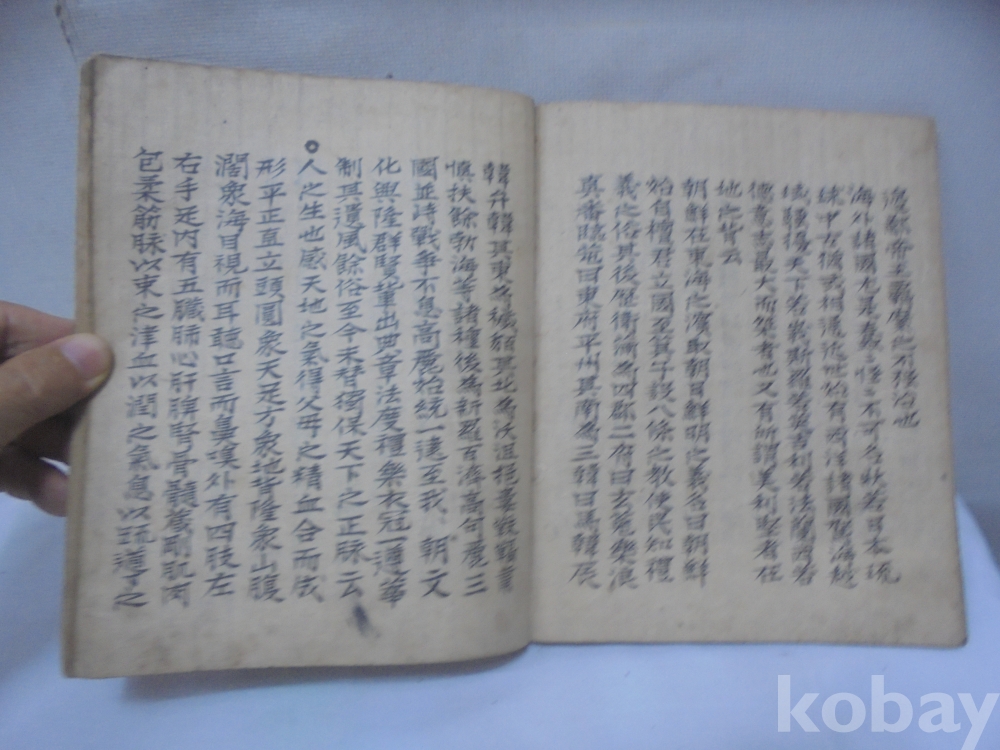 帝王覇業之
海外諸國尤是轟々怪々不可名狀若日本琉
球中古猶或相通近世始有西洋諸國駕海越
天下若俄斯羅若英吉利若法蘭西若
德意志最大而桀者也又有所謂美利堅者在
地之背云
朝鮮在東海之濱取朝日鮮明之義名曰朝鮮
始自檀君立國至箕子設八條之教使民知禮
義之俗其後歷衛滿爲四郡二府曰玄菟樂浪
真番臨芚曰東府平州其南爲三韓曰馬韓辰
韓弁韓其東爲濊貊其北爲沃沮挹婁靺鞨肅
愼扶餘渤海等諸種後爲新羅百濟高句麗三
國並峙戰爭不息高麗始統一逮至我 朝文
化興隆群賢輩出典章法度禮樂衣冠一遵華
制其遺風餘俗至今未替獨保天下之正脉云
○人之生也感天地之氣得父母之精血合而成
形平正直立頭圓象天足方象地背隆象山腹
濶象海目視而耳聽口言而鼻嗅外有四肢左
右手足內有五臟肺心肝脾腎骨髓藏剛肌肉
包柔筋脉以束之津血以潤之氣息以疏道之
kobay